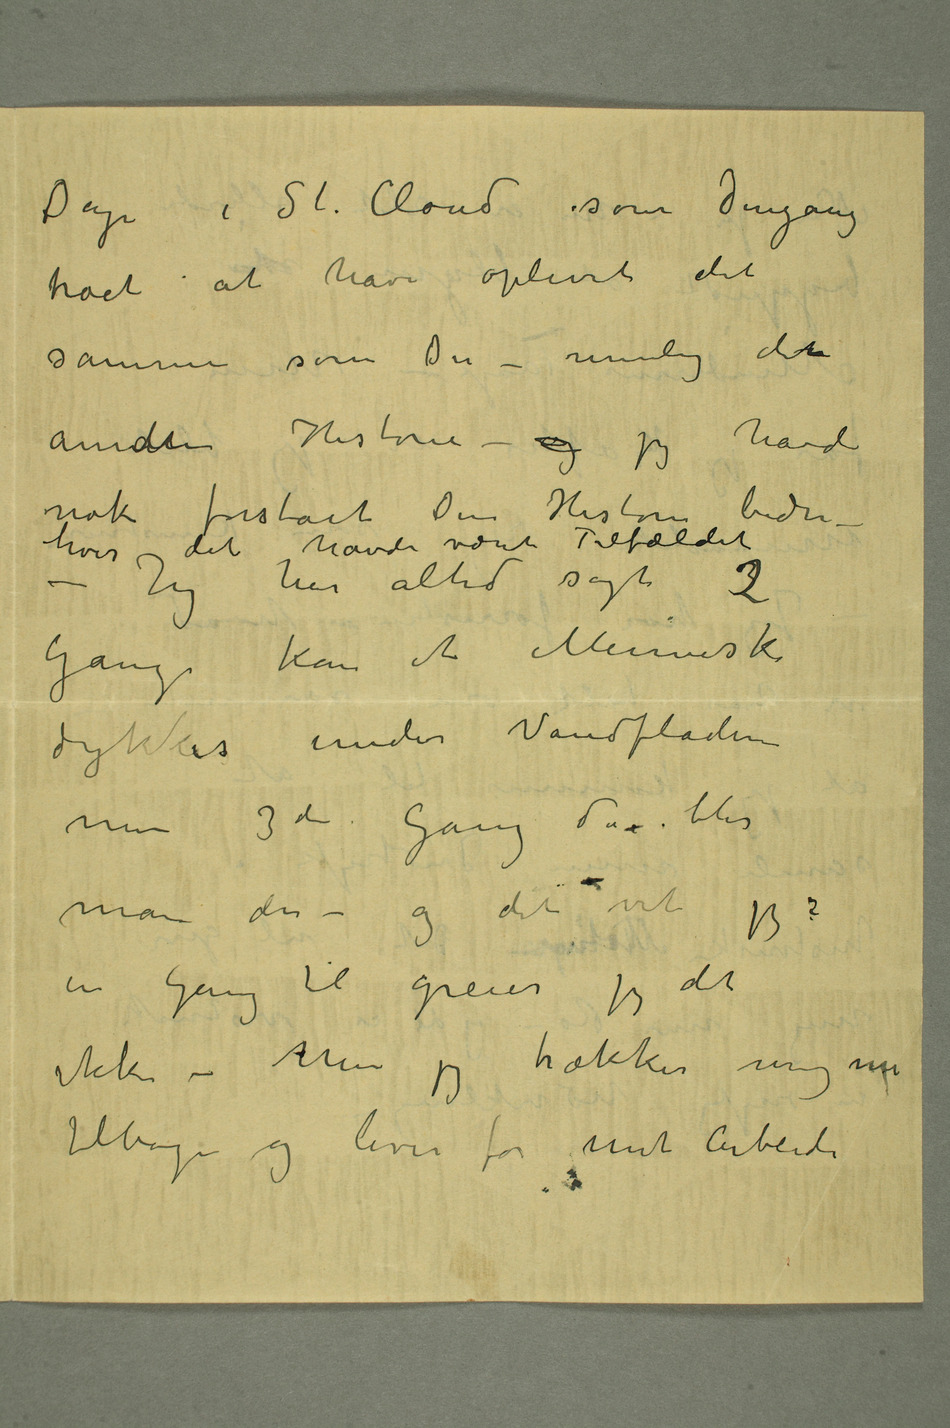 Dage i St. Cloud som dengang
troet at have oplevet det
samme som Du – nemlig den
anden Historie – og jeg havde
nok forstaaet Din Historie bedre –
hvis det havde været Tilfældet
– Jeg har altid sagt 2
Gange kan et Menneske
dykkes under Vandfladen
men 3die Gang da blir
man der – og det vet jeg?
en Gang til greier jeg det
ikke – Men jeg trækker mig nu
tilbage og lever for mit Arbeide